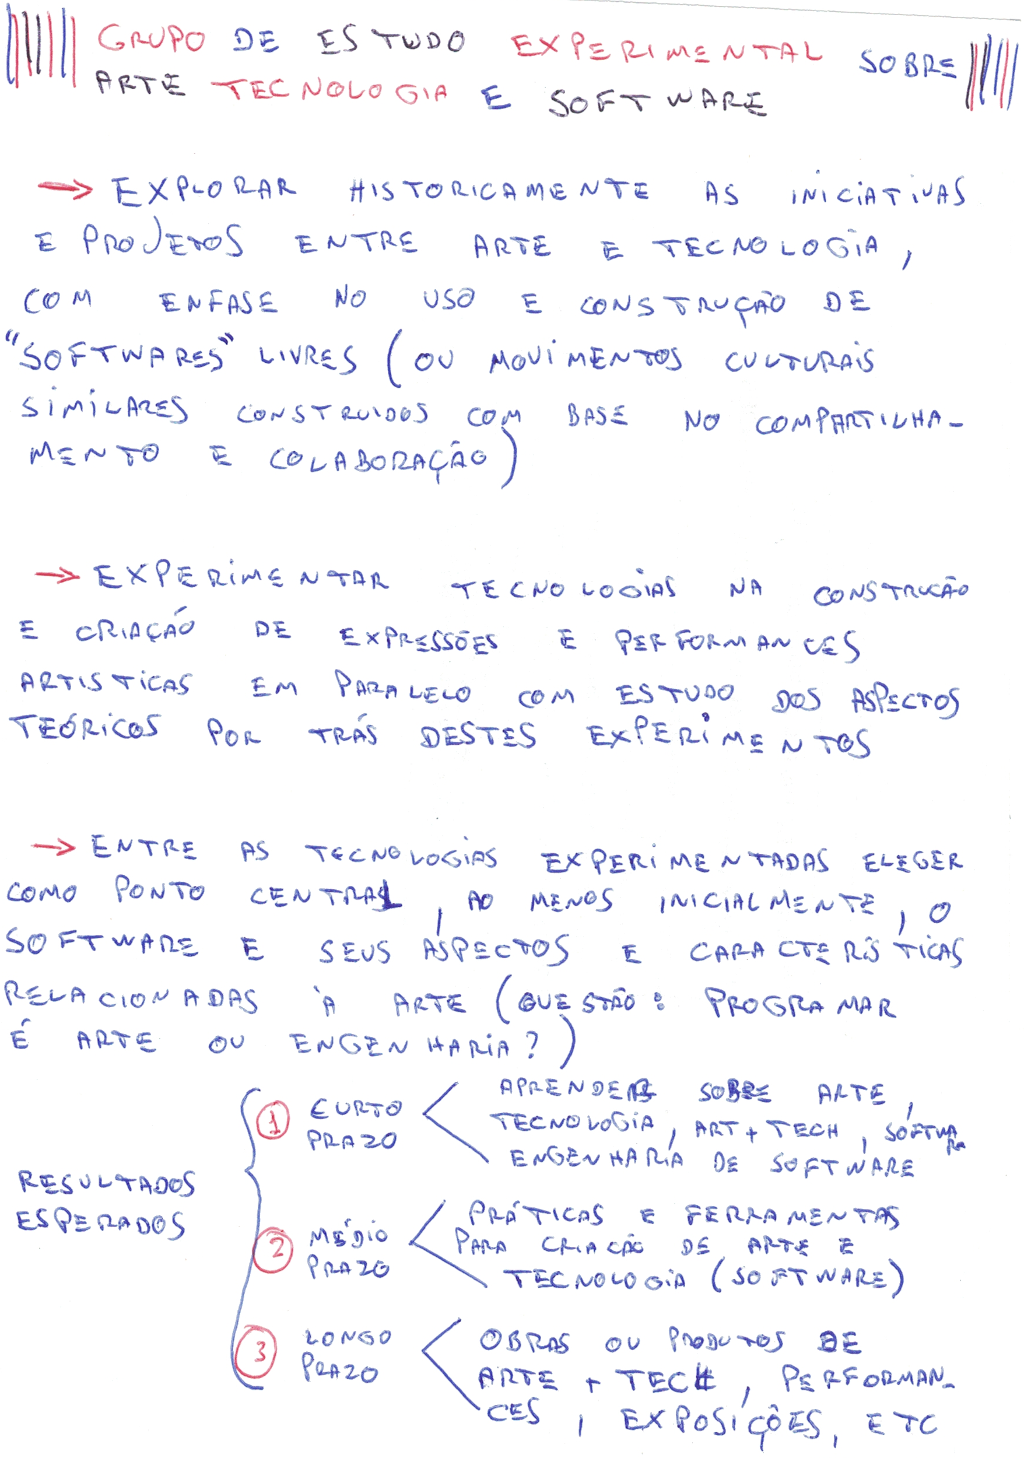 GRUPO DE ESTUDO EXPERIMENTAL SOBRE
ARTE TECNOLOGIA E SOFTWARE
→ EXPLORAR HISTORICAMENTE AS INICIATIVAS
E PROJETOS ENTRE ARTE E TECNOLOGIA,
COM ENFASE NO USO E CONSTRUÇÃO DE
"SOFTWARES" LIVRES (OU MOVIMENTOS CULTURAIS
SIMILARES CONSTRUIDOS COM BASE NO COMPARTILHA-
MENTO E COLABORAÇÃO)
→ EXPERIMENTAR TECNOLOGIAS NA CONSTRUCÃO
E CRIAÇÃO DE EXPRESSÕES E PERFORMANCES
ARTISTICAS EM PARALELO COM ESTUDO DOS ASPECTOS
TEÓRICOS POR TRÁS DESTES EXPERIMENTOS
→ ENTRE AS TECNOLOGIAS EXPERIMENTADAS ELEGER
COMO PONTO CENTRAL, AO MENOS INICIALMENTE, O
SOFTWARE E SEUS ASPECTOS E CARACTERÍSTICAS
RELACIONADAS À ARTE (QUESTÃO: PROGRAMAR
É ARTE OU ENGENHARIA?)
RESULTADOS
ESPERADOS
1 CURTO
PRAZO
APRENDER SOBRE ARTE,
TECNOLOGIA, ART+TECH, SOFTWARE
ENGENHARIA DE SOFTWARE
2 MÉDIO
PRAZO
PRÁTICAS E FERRAMENTAS
PARA CRIACÃO DE ARTE E
TECNOLOGIA (SOFTWARE)
3 LONGO
PRAZO
OBRAS OU PRODUTOS DE
ARTE + TECH, PERFORMAN-
CES, EXPOSIÇÕES, ETC